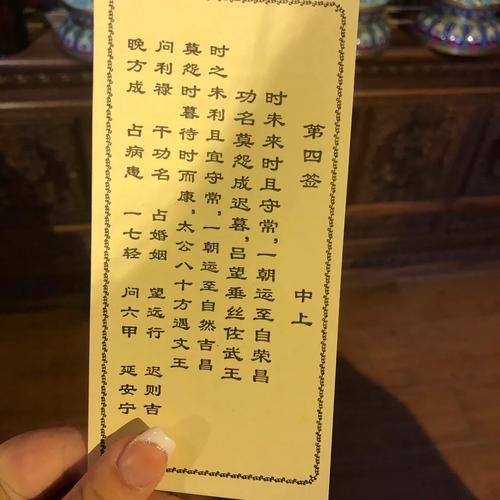 第四签 中上
时未来时且守常，一朝运至自荣昌
功名莫怨成迟暮，吕望垂丝佐武王
时之未利且宜守常，一朝运至自然吉昌
莫怨时暮待时而康，太公八十方遇文王
问利禄 干功名 占婚姻 望远行 迟则吉
晚方成 占病患 一七轻 问六甲 延安宁